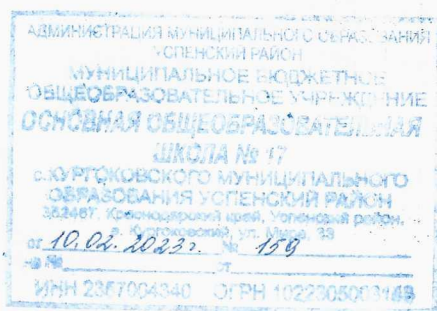 АДМИНИСТРАЦИЯ МУНИЦИПАЛЬНОГО ОБРАЗОВАНИЯ
УСПЕНСКИЙ РАЙОН
МУНИЦИПАЛЬНОЕ БЮДЖЕТНОЕ
ОБЩЕОБРАЗОВАТЕЛЬНОЕ УЧРЕЖДЕНИЕ
ОСНОВНАЯ ОБЩЕОБРАЗОВАТЕЛЬНАЯ
ШКОЛА № 17
с.КУРГОКОВСКОГО МУНИЦИПАЛЬНОГО
ОБРАЗОВАНИЯ УСПЕНСКИЙ РАЙОН
352467, Краснодарский край, Успенский район,
а. Кургоковский, ул. Мира, 33
от 10.02.2023г. № 159
на № от
ИНН 2357004340 ОГРН